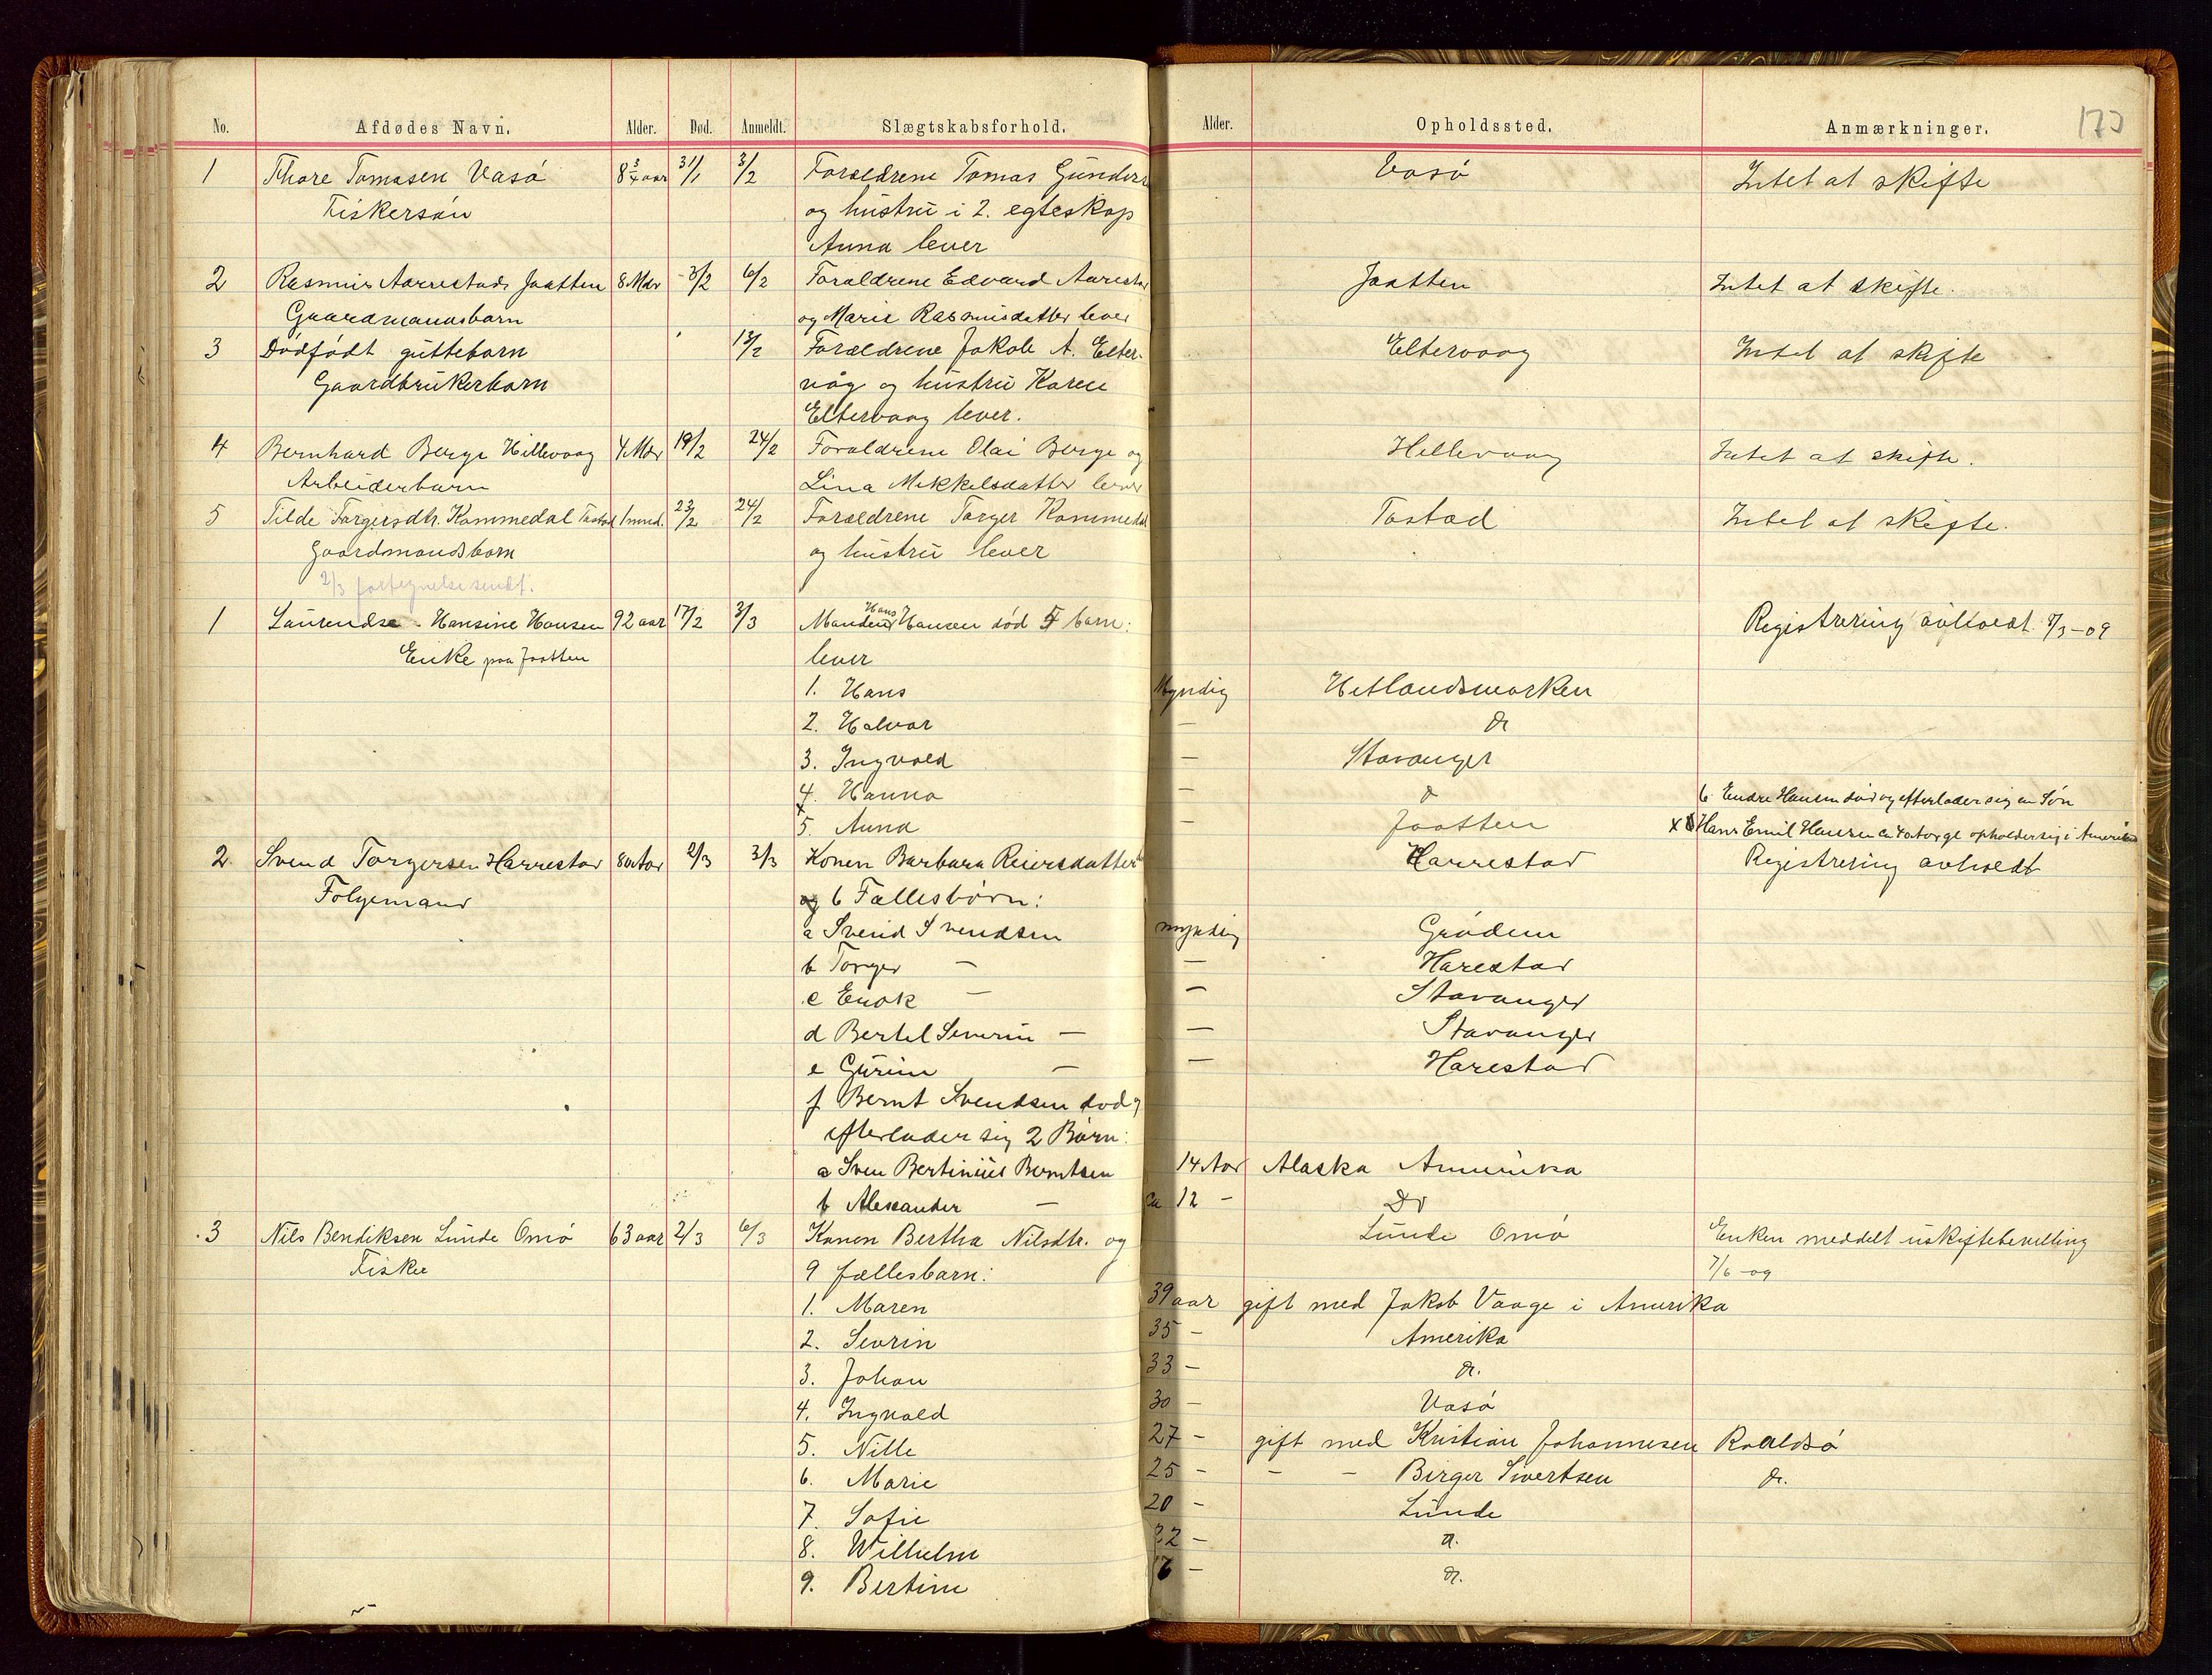 No. Afdødes Navn. Alder. Død. Anmeldt. Slægtskabsforhold. Alder. Opholdssted. Anmærkninger. 173
1 Thore Tomasen Vasø 8 3/4 aar 31/1 3/2 Forældrene Tomas Gunders Vasø Intet at skifte
Fiskersøn og hustru i 2. egteskap
Anna lever
2 Rasmus Aarrestads Jaatten 8 Mdr 3/2 6/2 Forældrene Edvard Aarestad Jaatten Intet at skifte.
Gaardmandsbarn og Marie Rasmusdatter lever
3 Dødfødt guttebarn 13/2 Forældrene Jakob A. Elter- Eltervaag Intet at skifte
Gaardbrukerbarn våg og hustru Karen
Eltervaag lever.
4 Bernhard Berge Hillevaag 4 Mdr 19/2 24/2 Forældrene Olai Berge og Hillevaag Intet at skifte.
Arbeiderbarn Lina Mikkelsdatter lever
5 Tilde Torgersdtr. Kommedal Tastad 1 mnd. 23/2 24/2 Forældrene Torger Kommedal Tastad Intet at skifte.
Gaardmandsbarn og hustru lever
2/3 fortegnelse sendt.
1 Laurendse Hansine Hansen 92 aar 17/2 3/3 Manden Hans Hansen død 5 barn: Registrering avholdt 8/3-09
Enke paa Jaatten lever
1. Hans Myndig Hetlandsmarken
2. Halvar — do
3. Ingvald — Stavanger
4. Hanna — do 6 Endre Hansen død og efterlader sig en Søn
x 5. Anna — Jaatten x Hans Emil Hansen ca 40 aar gl opholder sig i Amerika
2 Svend Torgersen Harrestad 80 Aar 2/3 3/3 Konen Barbara Reiersdatter Harrestad Registrering avholdt
Følgemand og 6 Fællesbørn:
a Svend Svendsen myndig Grødem
b Torger — — Harestad
c Enok — — Stavanger
d Bertel Severin — — Stavanger
e Gurine — — Harestad
f Bernt Svendsen død og
efterlader sig 2 Børn:
a Sven Bertinius Berntsen 14 Aar Alaska Amerika
b Alexander — ca 12 — Do
3 Nils Bendiksen Lunde Omø 63 aar 2/3 6/3 Konen Bertha Nilsdtr. og Lunde Omø Enken meddelt uskiftebevilling
Fisker 9 fællesbarn: 7/6-09
1. Maren 39 aar gift med Jakob Vaage i Amerika
2. Sevrin 35 — Amerika
3. Johan 33 — do.
4. Ingvald 30 — Vasø
5. Nille 27 — gift med Kristian Johannesen Roaldsø
6. Marie 25 — — — Birger Sivertsen do.
7. Sofie 20 — Lunde
8. Wilhelm 22 — do.
9. Bertine — do.